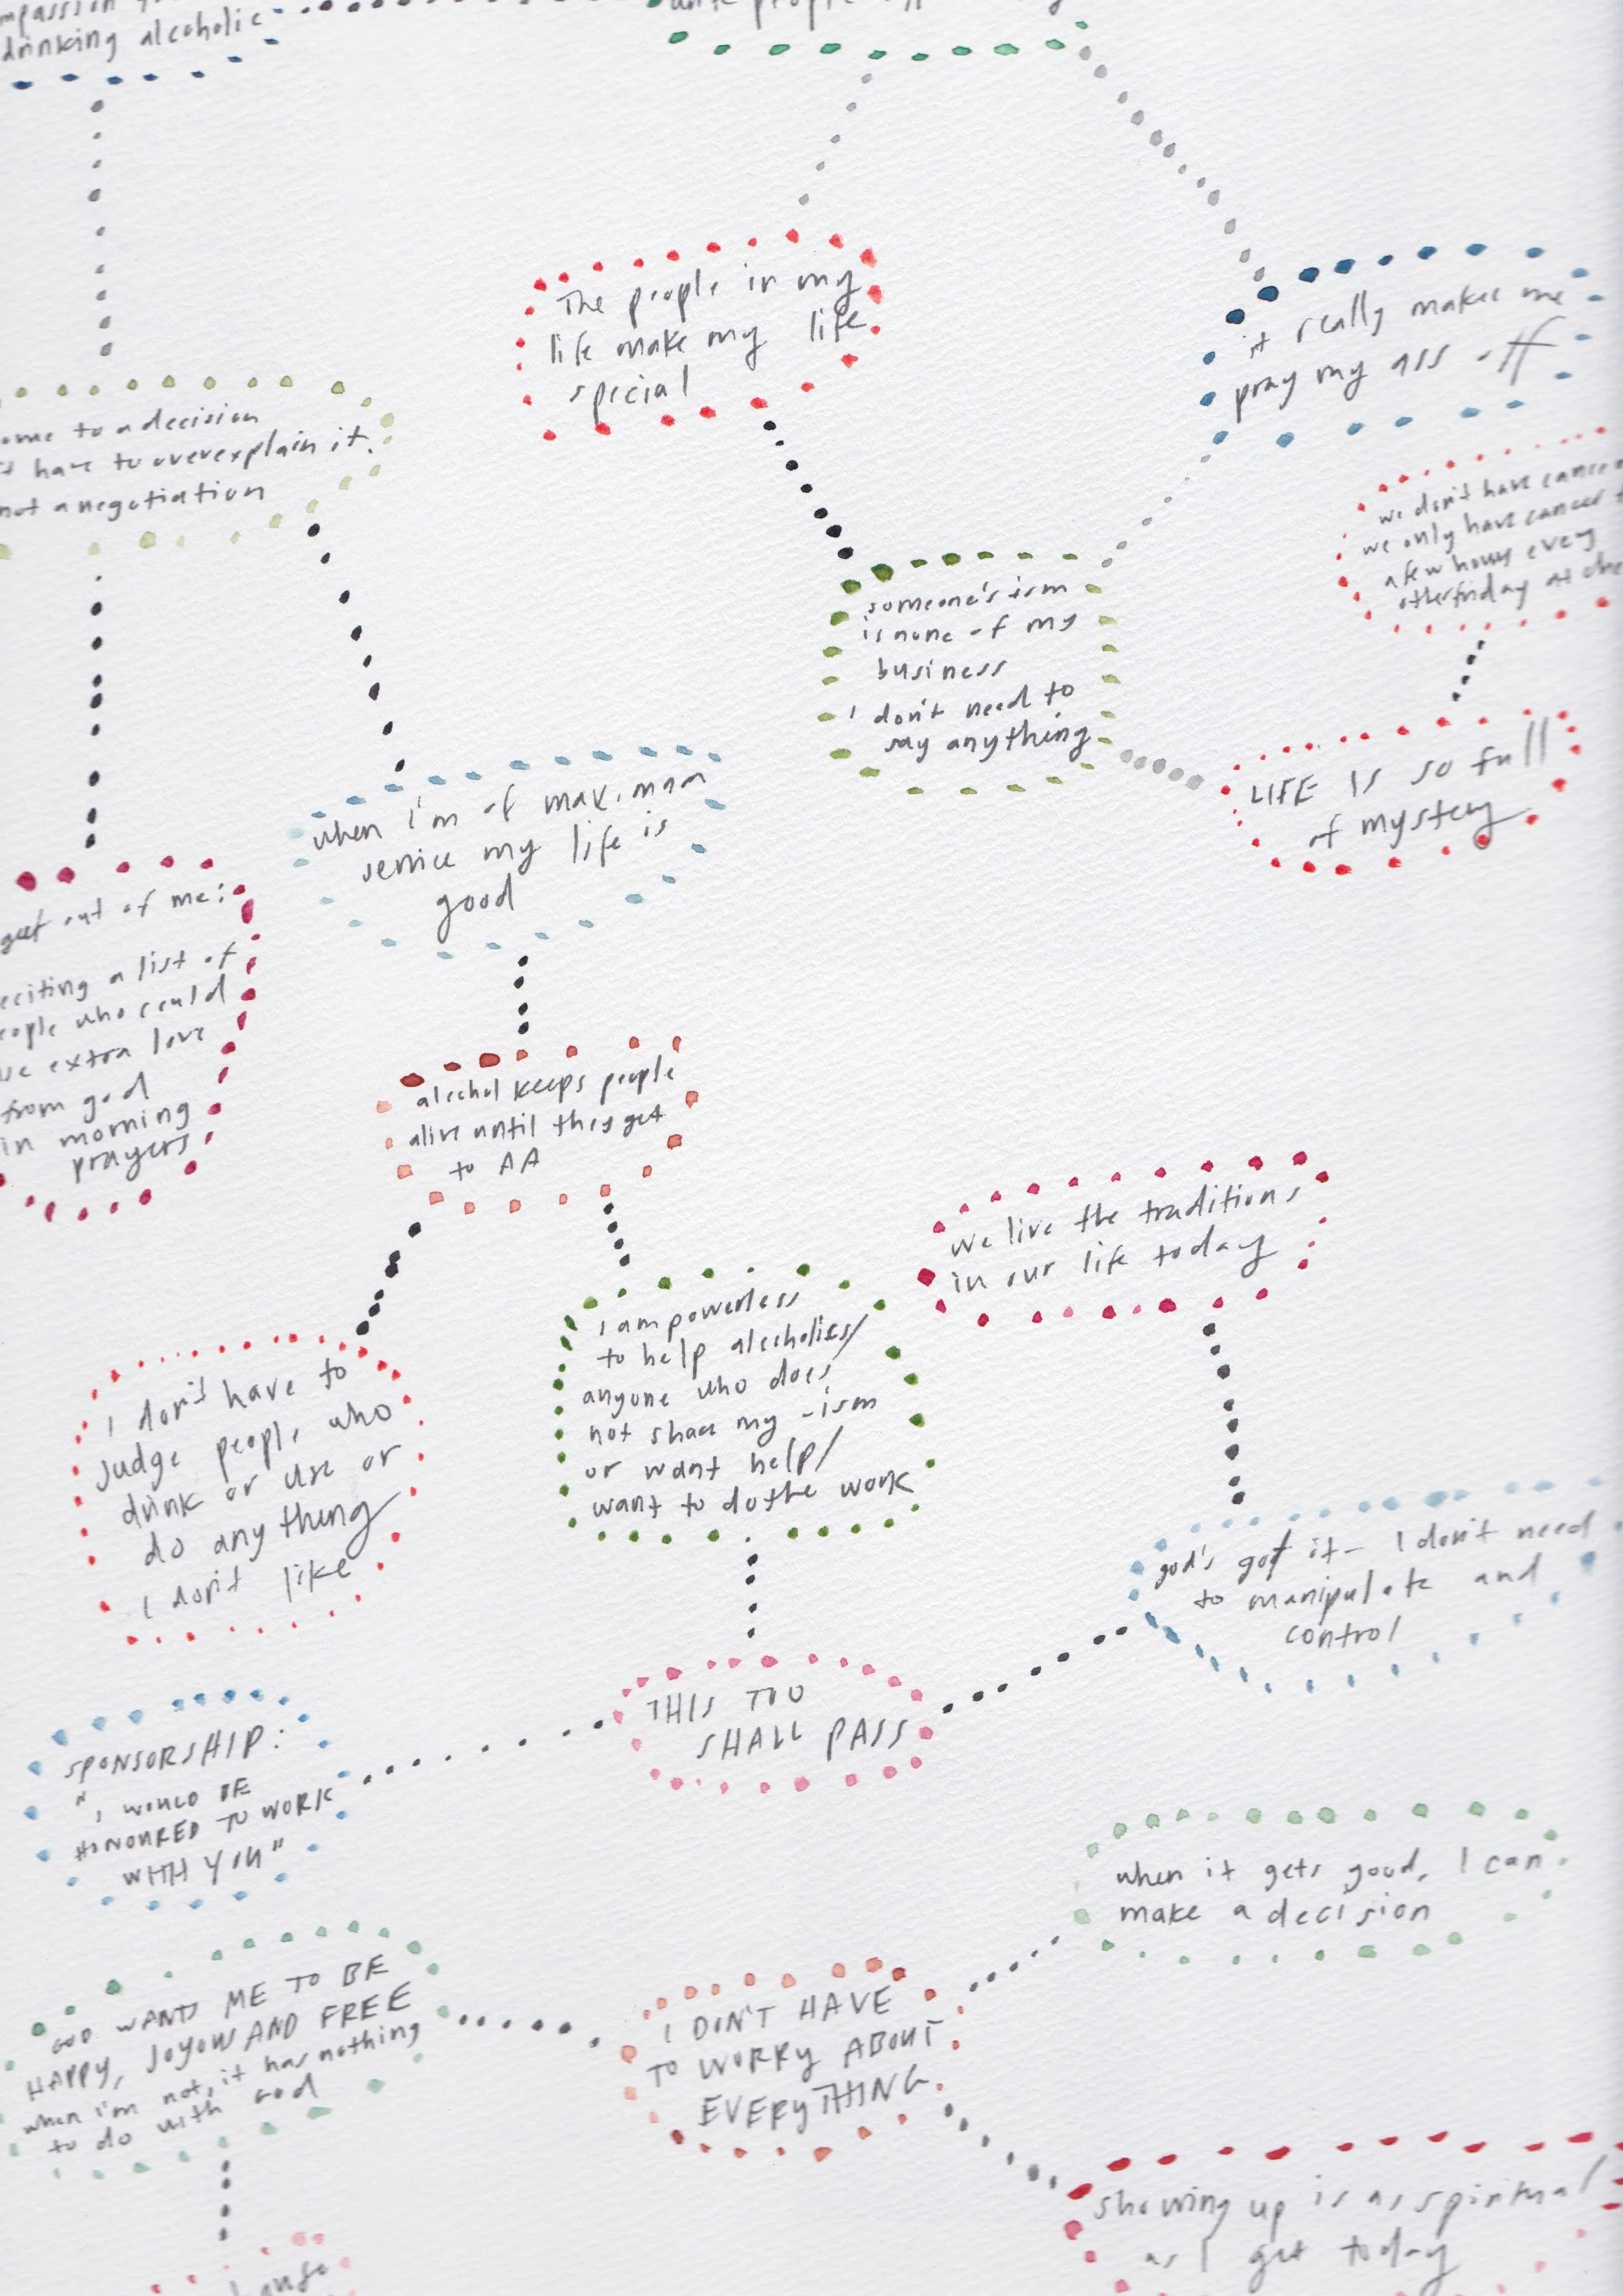 drinking alcoholic
The people in my
life make my life
special
it really makes me
pray my ass off
to a decision
have to overexplain it.
not a negotiation
we don't have cancer
we only have cancer
a few hours every
other friday at
someone's ism
is none of my
business
I don't need to
say anything
LIFE IS so full
of mystery
when I'm of maximum
service my life is
good
get out of me:
a list of
who could
extra love
from god
in morning
prayers
alcohol keeps people
alive until they get
to AA
we live the traditions
in our life today
I am powerless
to help alcoholics/
anyone who does
not share my -ism
or want help/
want to do the work
I don't have to
judge people who
drink or use or
do anything
I don't like
god's got it - I don't need
to manipulate and
control
THIS TOO
SHALL PASS
SPONSORSHIP:
"I WOULD BE
HONOURED TO WORK
WITH YOU"
when it gets good, I can
make a decision
GOD WANTS ME TO BE
HAPPY, JOYOUS AND FREE
when i'm not, it has nothing
to do with God
I DON'T HAVE
TO WORRY ABOUT
EVERYTHING
showing up is as spiritual
as I get today